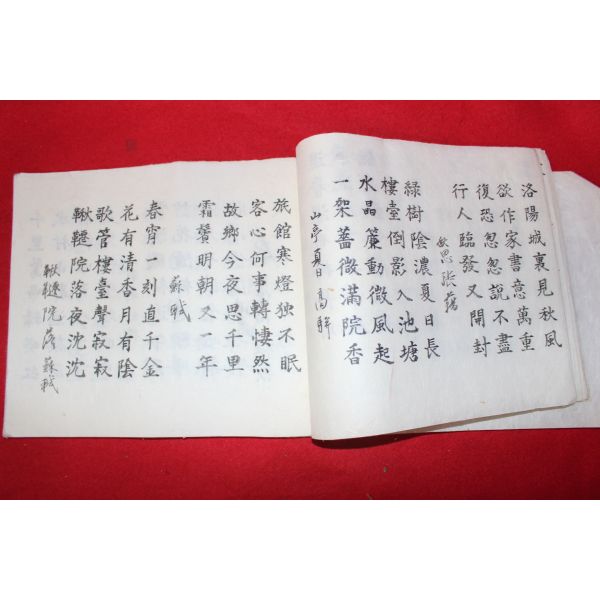 洛陽城裏見秋風
欲作家書意萬重
復恐忽忽說不盡
行人臨發又開封
秋思 張籍
綠樹陰濃夏日長
樓臺倒影入池塘
水晶簾動微風起
一架薔薇滿院香
山亭夏日 高駢
旅館寒燈独不眠
客心何事轉悽然
故鄉今夜思千里
霜鬢明朝又一年
蘇軾
春宵一刻直千金
花有清香月有陰
歌管樓臺聲寂寂
鞦韆院落夜沈沈
鞦韆院落 蘇軾